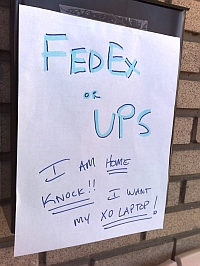 FEDEX
OR
UPS
I AM HOME
KNOCK!! I WANT
MY XO LAPTOP!